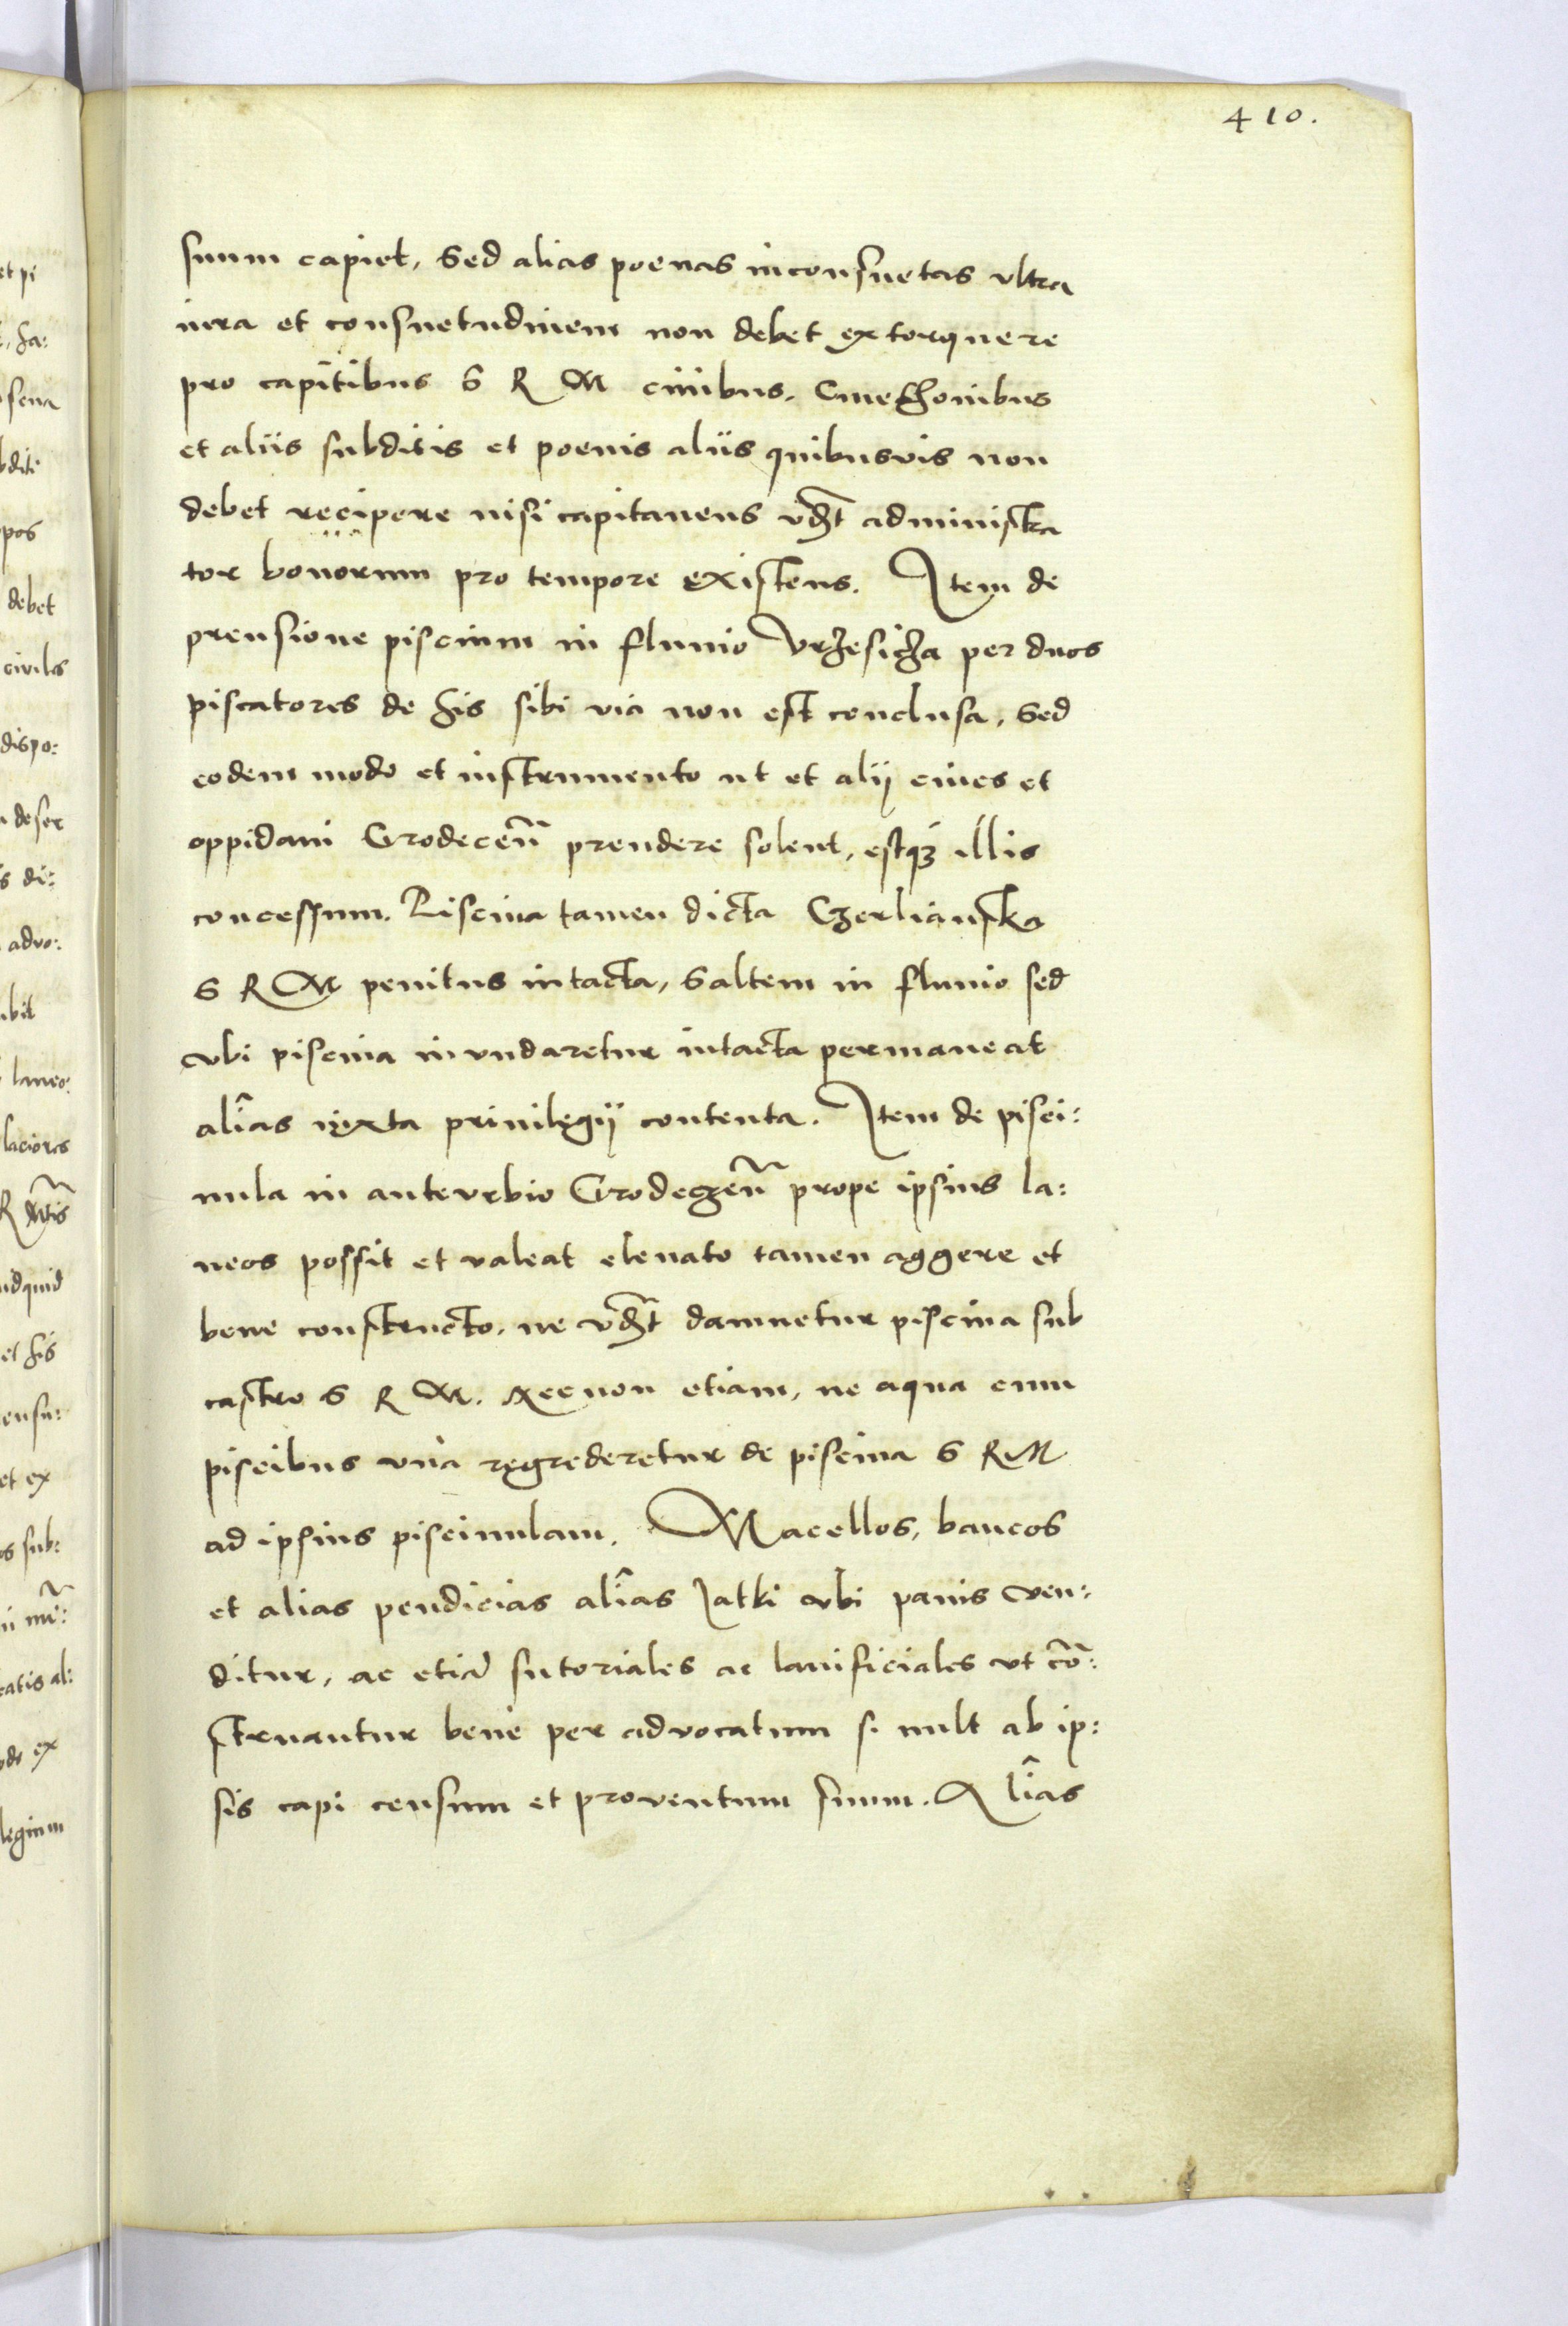 410.
suum capiet, Sed alias poenas inconsuetas ultra
iura et consuetudinem non debet extorquere
pro capitibus S R M civibus, Cmethonibus
et aliis subditis et poenis aliis quibusvis non
debet recipere nisi capitaneus vdt̃ administra
tor bonorum pro tempore existens. Item de
prensione piscium in fluvio Vrzesicza per duos
piscatores de his sibi via non est conclusa, Sed
eodem modo et instrumento ut et alij cives et
oppidani Grodeceñ prendere solent, estq3 illis
concessum. Piscina tamen dicta Czerlianska
S R M penitus intacta, Saltem in fluvio sed
ubi piscina inundaretur intacta permaneat
alĩas iuxta privilegij contenta. Item de pisci:
nula in anteurbio Grodeczeñ prope ipsius la:
neos possit et valeat elevato tamen aggere et
bene constructo, ne vdt̃ damnetur piscina sub
castro S R M. Necnon etiam, ne aqua cum
piscibus una regrederetur de piscina S R M
ad ipsius piscinulam. Macellos, bancos
et alias pendicias alĩas Jatki ubi panis ven:
ditur, ac etiã sutoriales ac lanificiales ut cõ:
struantur bene per advocatum si vult ab ip:
sis capi censum et proventum suum. Alĩas
et pi
debet
civiles
dispo:
s di:
advo:
laneo:
et ex
os sub:
catis al: